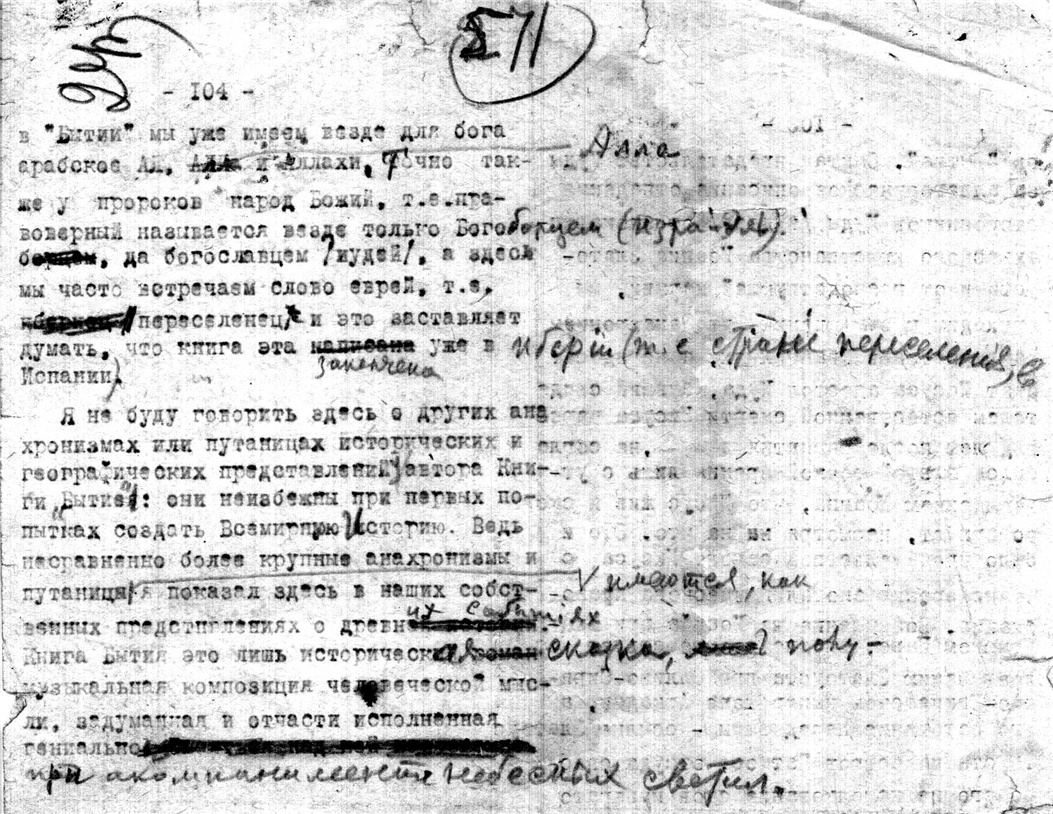 571
- 104 -
в "Бытии" мы уже имеем везде для бога
арабское Ал, Алла и Аллахи, Точно так-
же у пророков народ Божий, т.е. пра-
воверный называется везде только Богоборцем (Изра-Эль)
да богославцем /иудей/, а здесь
мы часто встречаем слово еврей, т.е.
переселенец, и это заставляет
думать, что книга эта закончена уже в Иберіи (т. е странѣ переселения, в
Испании)
Я не буду говорить здесь о других ана
хронизмах или путаницах исторических и
географических представлений автора Кни-
ги "Бытие": они неизбежны при первых по-
пытках создать Всемирную Историю. Ведь
несравненно более крупные анахронизмы и
путаницы имеются, как
я показал здесь в наших собст-
венных представлениях о древних событиях
Книга Бытия это лишь историческая сказка,
музыкальная композиция человеческой мыс-
ли, задуманная и отчасти исполненная
гениально
при акомпанименте небесных светил.